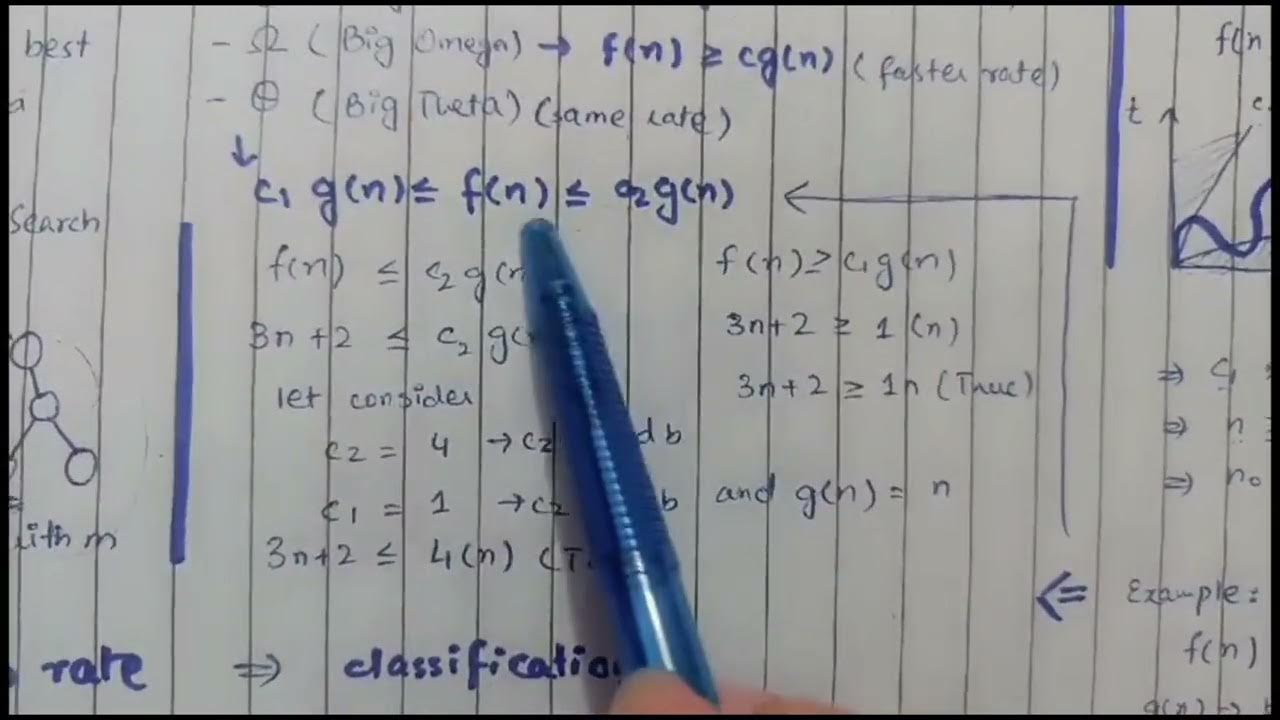 best
- Ω (Big Omega) → f(n) ≥ cg(n) (faster rate)
a
- ⊕ (Big Theta) (same rate)
↓
c₁ g(n) ≤ f(n) ≤ c₂g(n)
Search
f(n) ≤ c₂ g(n
3n+2 ≤ c₂ g(
let consider
c₂ = 4 → c₂ d b
c₁ = 1 → c₂ b
3n+2 ≤ 4(n) (T
f(n) ≥ c₁g(n)
3n+2 ≥ 1(n)
3n+2 ≥ 1n (True)
and g(n) = n
ithm
rate ⇒ classificatio
f(n
t c
⇒ C₁
⇒ n ≥
⇒ n₀
⇐ Example:
f(n)
g(n) →